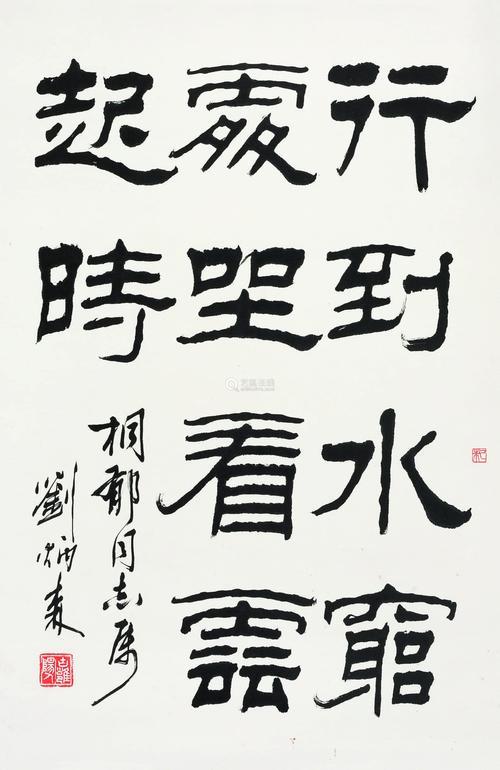 行到水窮
處坐看雲
起時
桐郁同志属
劉炳森